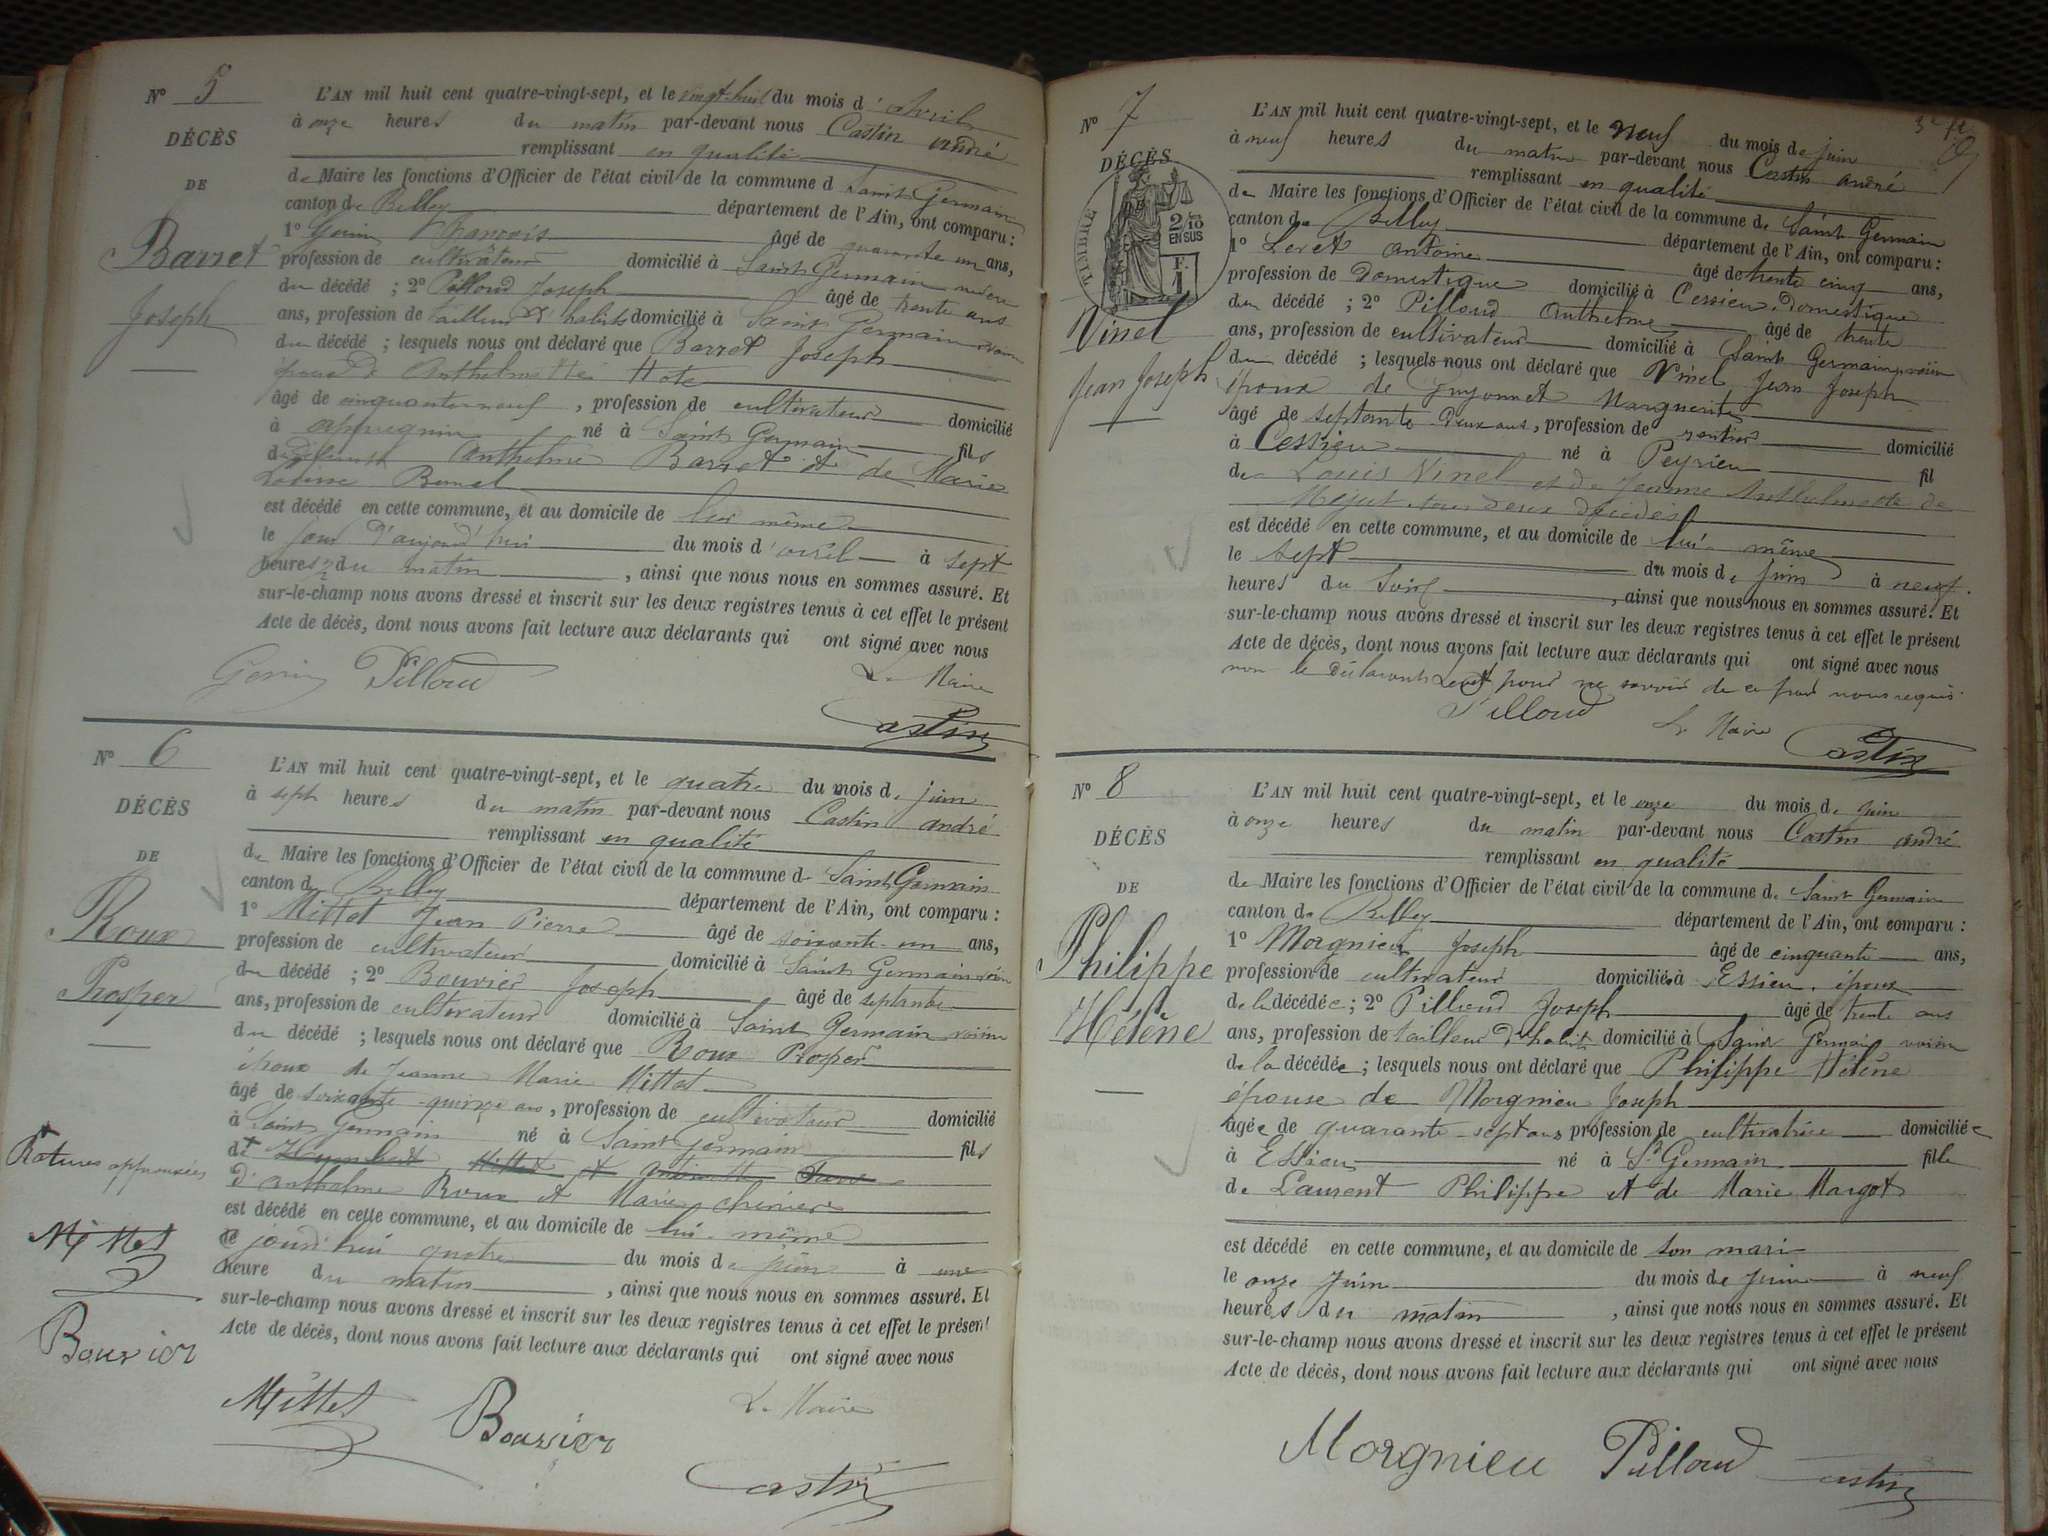 N° 5
DÉCÈS
DE
Barret
Joseph
L'AN mil huit cent quatre-vingt-sept, et le vingt-huit du mois d'Avril
à onze heures du matin par-devant nous Castin andré
remplissant en qualité
de Maire les fonctions d'Officier de l'état civil de la commune d Saint Germain
canton de Belley département de l'Ain, ont comparu :
1° François âgé de quarante un ans,
profession de cultivateur domicilié à Saint Germain
du décédé ; 2° Pilloud Joseph âgé de trente ans
ans, profession de tailleur d'habits domicilié à Saint Germain voisin
du décédé ; lesquels nous ont déclaré que Barret Joseph
époux d'Anthelmette
âgé de cinquante neuf, profession de cultivateur domicilié
à né à Saint Germain fils
de défunt Anthelme Barret et de Marie
est décédé en cette commune, et au domicile de lui même
le jour d'aujourd'hui du mois d'avril à sept
heures ½ du matin, ainsi que nous nous en sommes assuré. Et
sur-le-champ nous avons dressé et inscrit sur les deux registres tenus à cet effet le présent
Acte de décès, dont nous avons fait lecture aux déclarants qui ont signé avec nous
Pilloud Le Maire
Castin
N° 6
DÉCÈS
DE
Roux
Prosper
L'AN mil huit cent quatre-vingt-sept, et le quatre du mois de juin
à sept heures du matin par-devant nous Castin andré
remplissant en qualité
de Maire les fonctions d'Officier de l'état civil de la commune de Saint Germain
canton de Belley département de l'Ain, ont comparu :
1° Mittet Jean Pierre âgé de soixante-un ans,
profession de cultivateur domicilié à Saint Germain voisin
du décédé ; 2° Bouvier Joseph âgé de septante
ans, profession de cultivateur domicilié à Saint Germain voisin
du décédé ; lesquels nous ont déclaré que Roux Prosper
époux de Jeanne Marie Mittet
âgé de soixante-quinze ans, profession de cultivateur domicilié
à Saint Germain né à Saint Germain fils
d+ Humbert Mittet et
d'anthelme Roux et Marie
est décédé en cette commune, et au domicile de lui-même
jourd'hui quatre du mois de juin à une
heure du matin, ainsi que nous nous en sommes assuré. Et
sur-le-champ nous avons dressé et inscrit sur les deux registres tenus à cet effet le présent
Acte de décès, dont nous avons fait lecture aux déclarants qui ont signé avec nous
+ Ratures approuvées
Mittet
Bouvier
Mittet Bouvier Le Maire
Castin
N° 7
DÉCÈS
TIMBRE
2/10
EN SUS
F.
1
Vinel
Jean Joseph
L'AN mil huit cent quatre-vingt-sept, et le neuf du mois de juin
à neuf heures du matin par-devant nous Castin andré
remplissant en qualité
de Maire les fonctions d'Officier de l'état civil de la commune de Saint Germain
canton de Belley département de l'Ain, ont comparu :
1° Levet antoine âgé de trente cinq ans,
profession de Domestique domicilié à Cessieu, domestique
du décédé ; 2° Pilloud Anthelme âgé de trente
ans, profession de cultivateur domicilié à Saint Germain, voisin
du décédé ; lesquels nous ont déclaré que Vinel Jean Joseph
époux de Guyonnet Marguerite
âgé de septante-deux ans, profession de rentier domicilié
à Cessieu né à Peyrieu fil
de Louis Vinel et de Jeanne Anthelmette de
tous deux décédés
est décédé en cette commune, et au domicile de lui-même
le sept du mois de juin à neuf
heures du soir, ainsi que nous nous en sommes assuré. Et
sur-le-champ nous avons dressé et inscrit sur les deux registres tenus à cet effet le présent
Acte de décès, dont nous avons fait lecture aux déclarants qui ont signé avec nous
non le déclarant Levet pour ne savoir de ce par nous requis
Pilloud Le Maire
Castin
N° 8
DÉCÈS
DE
Philippe
Hélène
L'AN mil huit cent quatre-vingt-sept, et le onze du mois de juin
à onze heures du matin par-devant nous Castin andré
remplissant en qualité
de Maire les fonctions d'Officier de l'état civil de la commune de Saint Germain
canton de Belley département de l'Ain, ont comparu :
1° Morgnieu Joseph âgé de cinquante ans,
profession de cultivateur domicilié à Essieu, époux
de la décédée ; 2° Pilloud Joseph âgé de trente ans
ans, profession de tailleur d'habits domicilié à Saint Germain voisin
de la décédée ; lesquels nous ont déclaré que Philippe Hélène
épouse de Morgnieu Joseph
âgée de quarante-sept ans profession de cultivatrice domiciliée
à Essieu né à St Germain fille
de Laurent Philippe et de Marie Margot
est décédé en cette commune, et au domicile de son mari
le onze juin du mois de juin à neuf
heures du matin, ainsi que nous nous en sommes assuré. Et
sur-le-champ nous avons dressé et inscrit sur les deux registres tenus à cet effet le présent
Acte de décès, dont nous avons fait lecture aux déclarants qui ont signé avec nous
Morgnieu Pilloud Castin